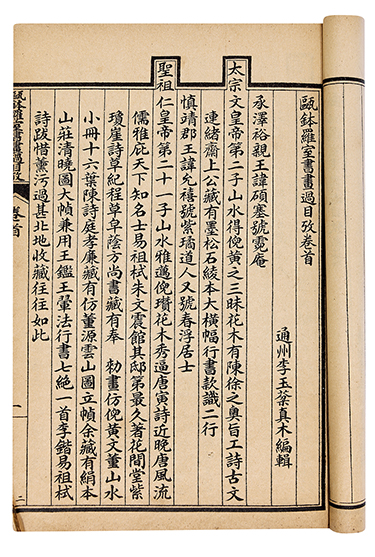 甌鉢羅室書畫過目攷卷首
通州李玉棻真木編輯
承澤裕親王諱碩塞號霓庵
太宗文皇帝第二子山水得倪黃之三昧花木有陳徐之奧旨工詩古文
連緒齋上公藏有墨松石綾本大橫幅行書款識二行
慎靖郡王諱允禧號紫瓊道人又號春浮居士
聖祖仁皇帝第二十一子山水雅邁倪瓚花木秀逼唐寅詩近晚唐風流
儒雅庇天下知名士易祖栻朱文震館其邸第最久著花間堂紫
瓊崖詩草紀程草卓蔭方尚書藏有奉 勅畫仿倪黃文董山水
小冊十六葉陳詩庭孝廉藏有仿董源雲山圖立幀余藏有絹本
山莊清曉圖大幀兼用王鑑王翬法行書七絕一首李鍇易祖栻
詩跋惜薰污過甚北地收藏往往如此
甌鉢羅室書畫過目攷
卷首
一
二